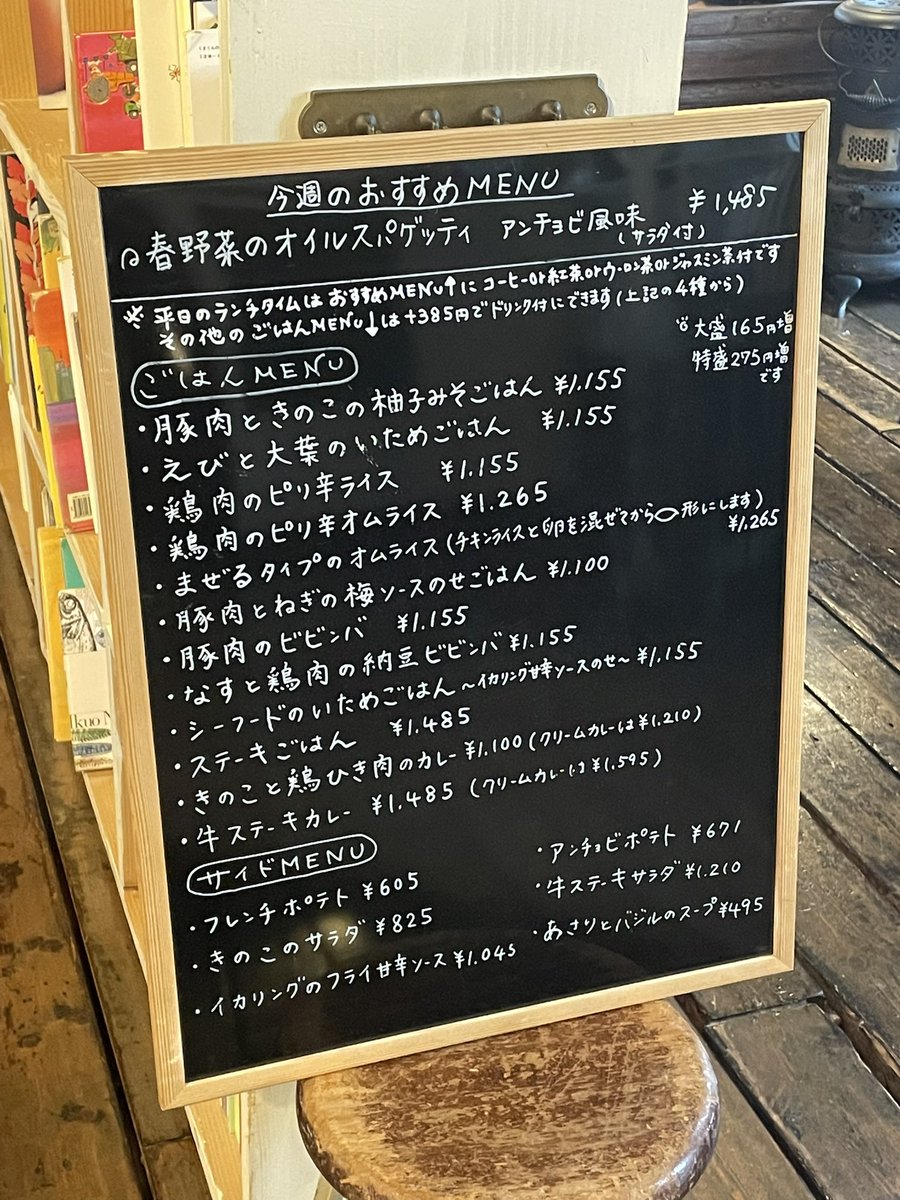 今週のおすすめMENU
春野菜のオイルスパゲッティ アンチョビ風味 ¥1,485
(サラダ付)
※平日のランチタイムはおすすめMENU↑にコーヒーor紅茶orウーロン茶orジャスミン茶付です
その他のごはんMENU↓は+385円でドリンク付にできます(上記の4種から)
大盛165円増
特盛275円増
です
ごはんMENU
・豚肉ときのこの柚子みそごはん ¥1.155
・えびと大葉のいためごはん ¥1.155
・鶏肉のピリ辛ライス ¥1.155
・鶏肉のピリ辛オムライス ¥1.265
・まぜるタイプのオムライス(チキンライスと卵を混ぜてから形にします)
¥1,265
・豚肉とねぎの梅ソースのせごはん ¥1.100
・豚肉のビビンバ ¥1.155
・なすと鶏肉の納豆ビビンバ ¥1.155
・シーフードのいためごはん～イカリング甘辛ソースのせ～ ¥1.155
・ステーキごはん ¥1.485
・きのこと鶏ひき肉のカレー ¥1.100 (クリームカレーは¥1.210)
・牛ステーキカレー ¥1.485 (クリームカレーは¥1.595)
サイドMENU
・フレンチポテト ¥605
・きのこのサラダ ¥825
・イカリングのフライ甘辛ソース ¥1.045
・アンチョビポテト ¥671
・牛ステーキサラダ ¥1.210
・あさりとバジルのスープ ¥495